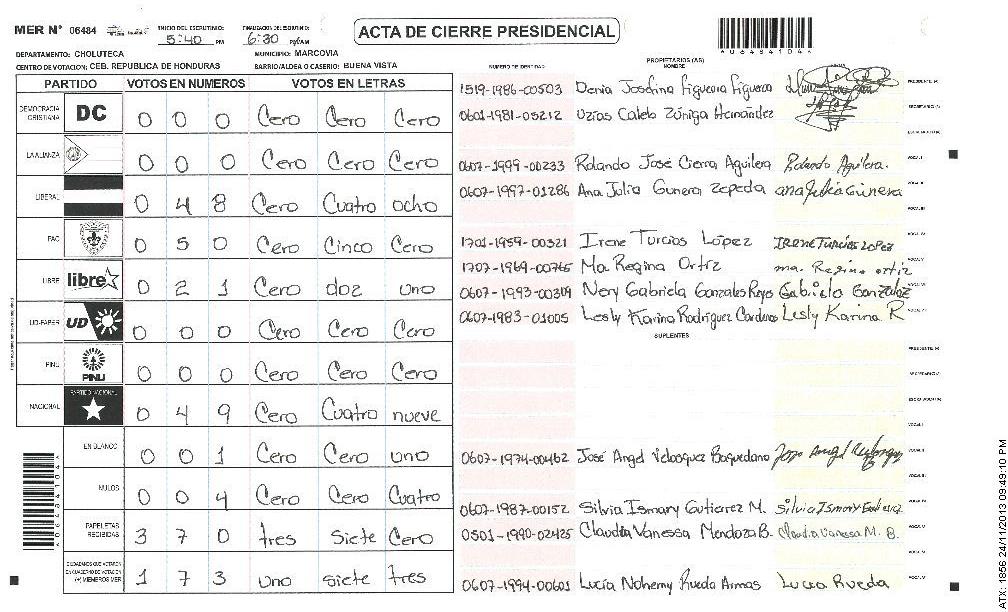 MER Nº 06484 INICIO DEL ESCRUTINIO: 5:40 PM FINALIZACION DEL ESCRUTINIO: 6:30 PM/AM
ACTA DE CIERRE PRESIDENCIAL
*06484104*
DEPARTAMENTO: CHOLUTECA MUNICIPIO: MARCOVIA
CENTRO DE VOTACION: CEB. REPUBLICA DE HONDURAS BARRIO/ALDEA O CASERIO: BUENA VISTA
PARTIDO VOTOS EN NUMEROS VOTOS EN LETRAS
DEMOCRACIA CRISTIANA DC 0 0 0 Cero Cero Cero
LA ALIANZA 0 0 0 Cero Cero Cero
LIBERAL 0 4 8 Cero Cuatro ocho
PAC 0 5 0 Cero Cinco Cero
LIBRE libre 0 2 1 Cero doz uno
UD-FAPER UD 0 0 0 Cero Cero Cero
PINU PINU 0 0 0 Cero Cero Cero
NACIONAL PARTIDO NACIONAL 0 4 9 Cero Cuatro nueve
EN BLANCO 0 0 1 Cero Cero uno
NULOS 0 0 4 Cero Cero Cuatro
PAPELETAS RECIBIDAS 3 7 0 tres siete Cero
CIUDADANOS QUE VOTARON EN CUADERNO DE VOTACION (+) MIEMBROS MER 1 7 3 uno siete tres
*06484104*
NUMERO DE IDENTIDAD PROPIETARIOS (AS) NOMBRE FIRMA
1519-1986-00503 Denia Josefina Figueroa Figueroa PRESIDENTE (A)
0601-1981-05212 Uzias Caleb Zúniga Hernández SECRETARIO (A)
ESCRUTADOR (A)
0607-1999-00233 Rolando José Cierra Aguilera Rolando Aguilera. VOCAL I
0607-1997-01286 Ana Julia Gunera Zepeda ana Julia Gunera VOCAL II
VOCAL III
1701-1959-00321 Irene Turcios López Irene Turcios Lopez VOCAL IV
1707-1969-00765 Ma. Regina Ortiz ma. Regina ortiz VOCAL V
0607-1993-00309 Nery Gabriela Gonzales Reyes Gabriela Gonzalez VOCAL VI
0607-1983-01005 Lesly Karina Rodríguez Cardenas Lesly Karina R VOCAL VII
SUPLENTES
PRESIDENTE (A)
SECRETARIO (A)
ESCRUTADOR (A)
VOCAL I
0607-1974-00462 José Angel Velasquez Baquedano VOCAL II
VOCAL III
0607-1987-00152 Silvia Ismary Gutierrez M. VOCAL IV
0501-1990-02425 Claudia Vanessa Mendoza B. Claudia Vanessa M. B. VOCAL V
VOCAL VI
0607-1994-00601 Lucía Nohemy Rueda Armas Lucia Rueda VOCAL VII
ATX-1856 24/11/2013 09:49:10 PM